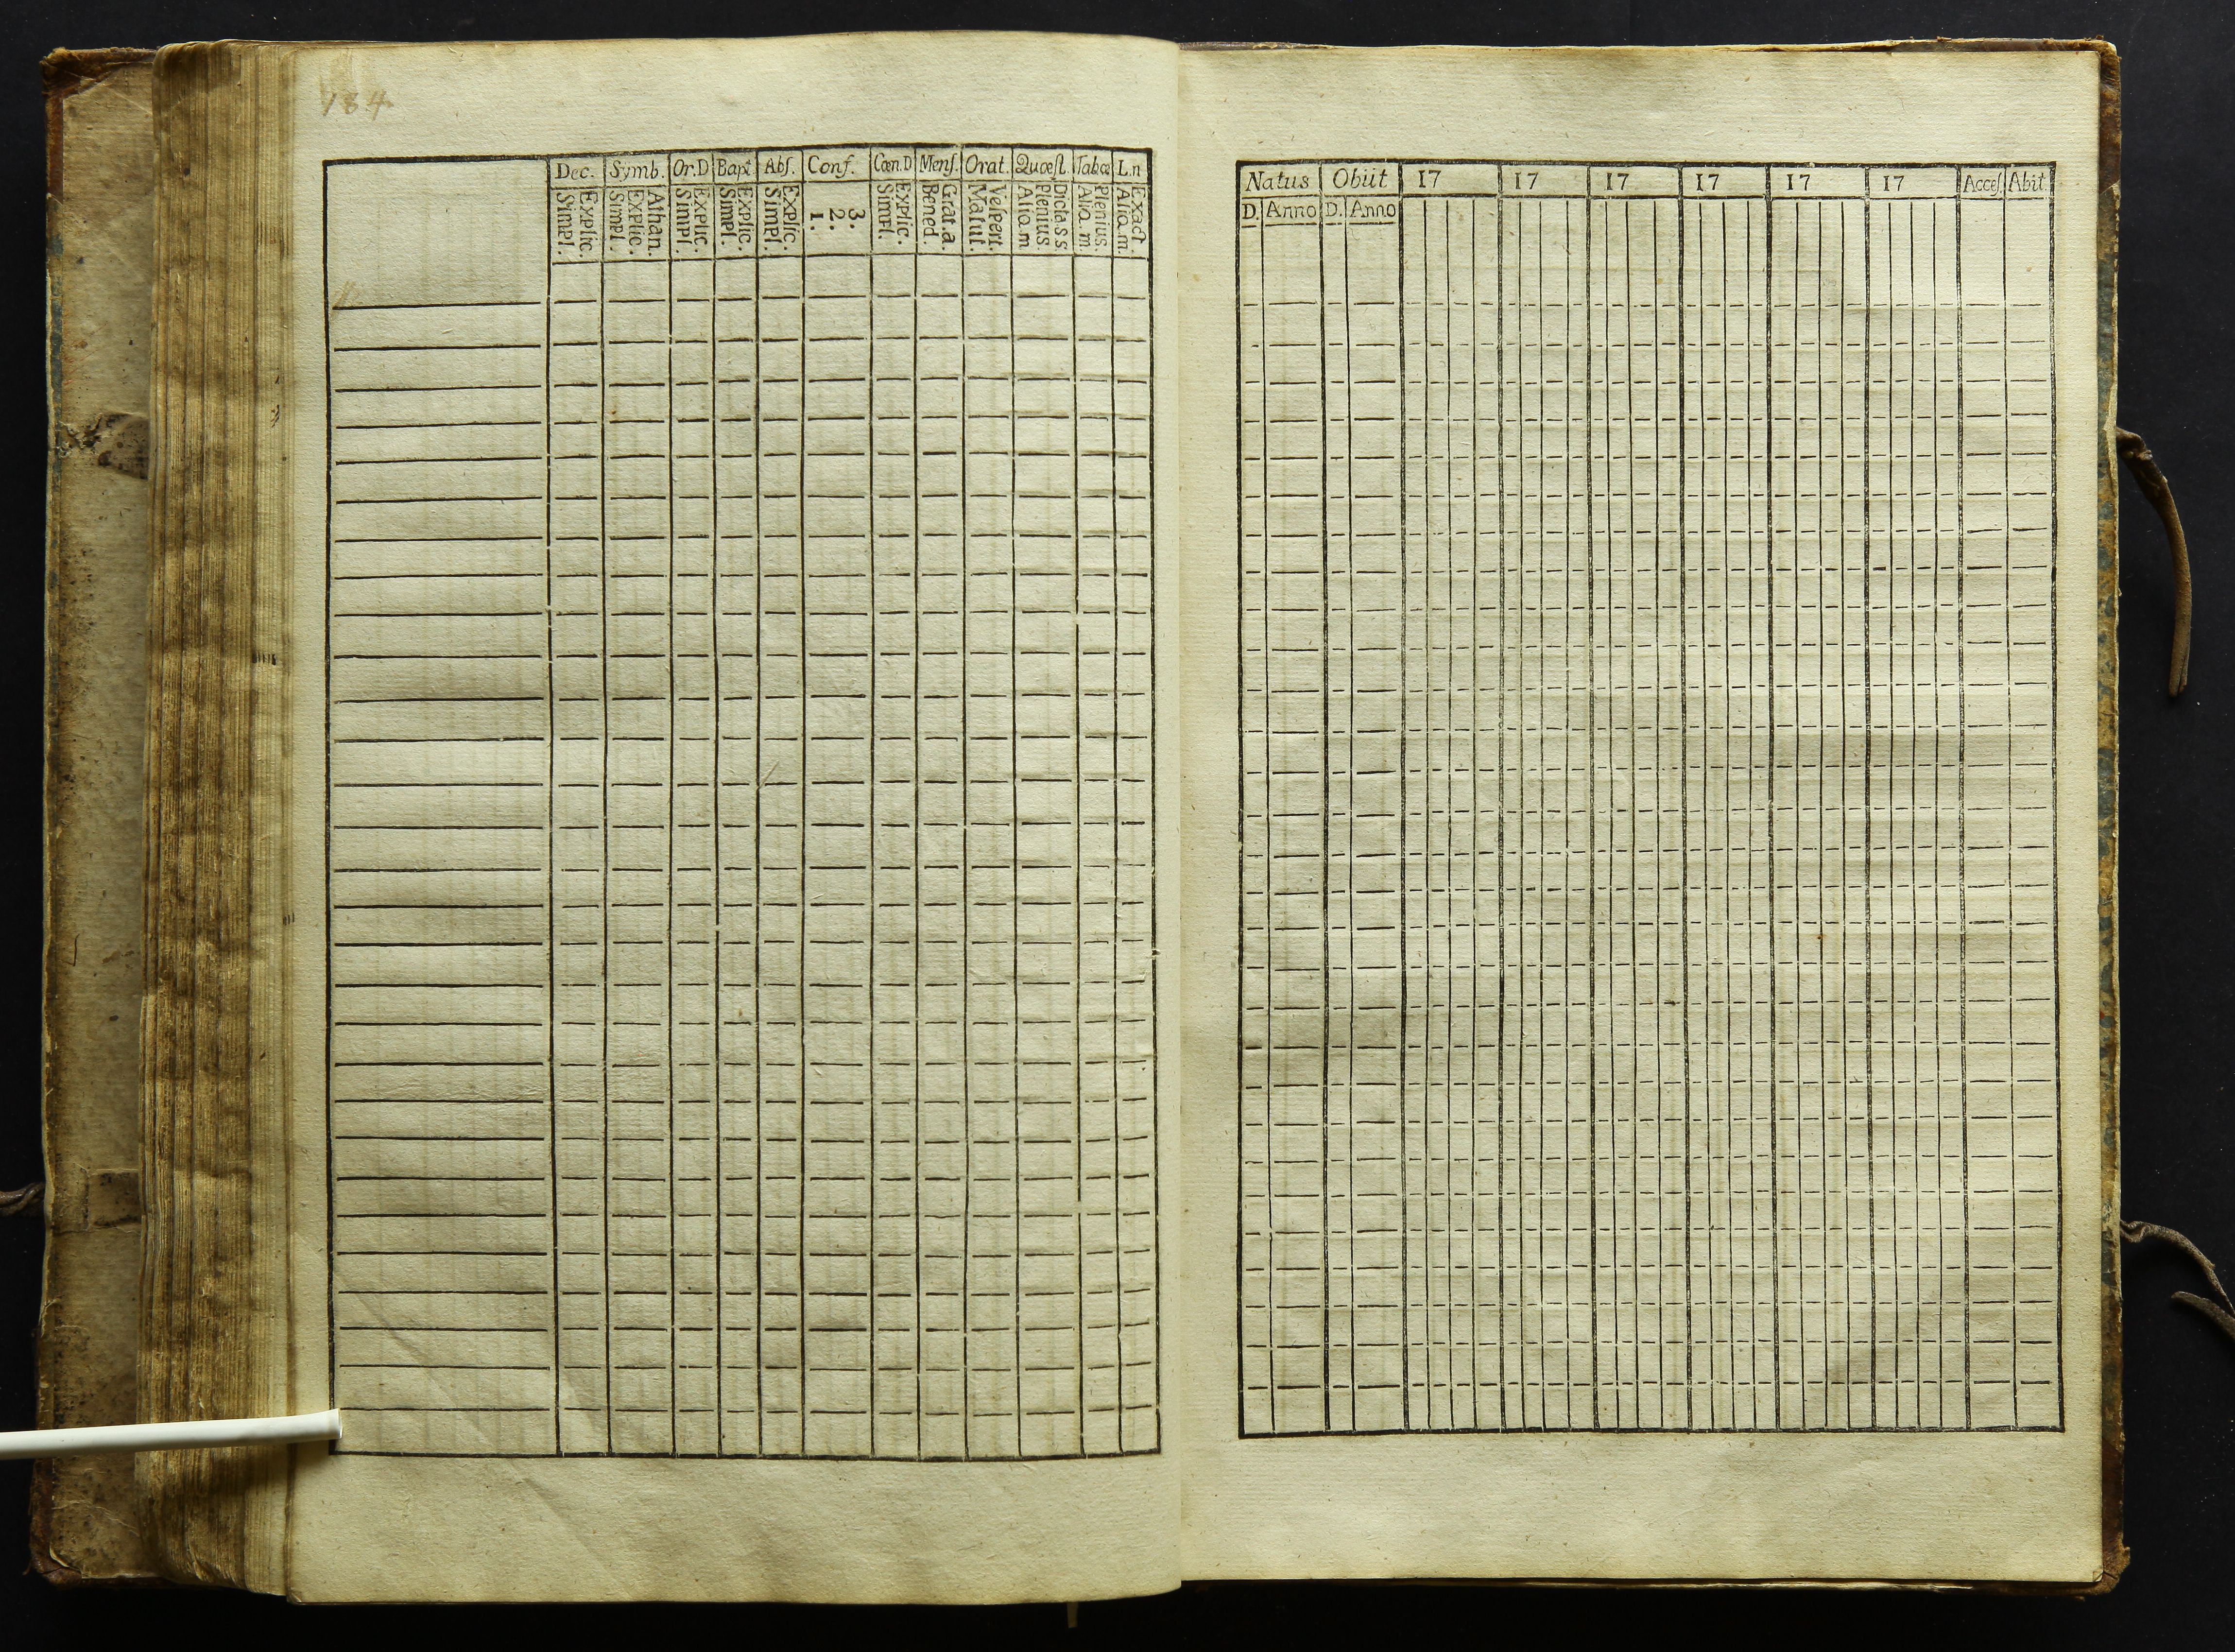 184.
Dec. Symb. Or.D Bapt. Abſ. Conf. Cœn.D Menſ. Orat. Quæſt. Tabœ L.n
Explic. Simpl. Athan. Explic. Simpl. Explic. Simpl. Explic. Simpl. Explic. Simpl. 3. 2. 1. Explic. Simpl. Grat.a. Bened. Veſpert. Matut. Dicta s s. Plenius Aliq.m Plenius. Aliq.m. Exact Aliq.m.
Natus Obiit 17 17 17 17 17 17 Acceſ. Abit.
D. Anno D. Anno